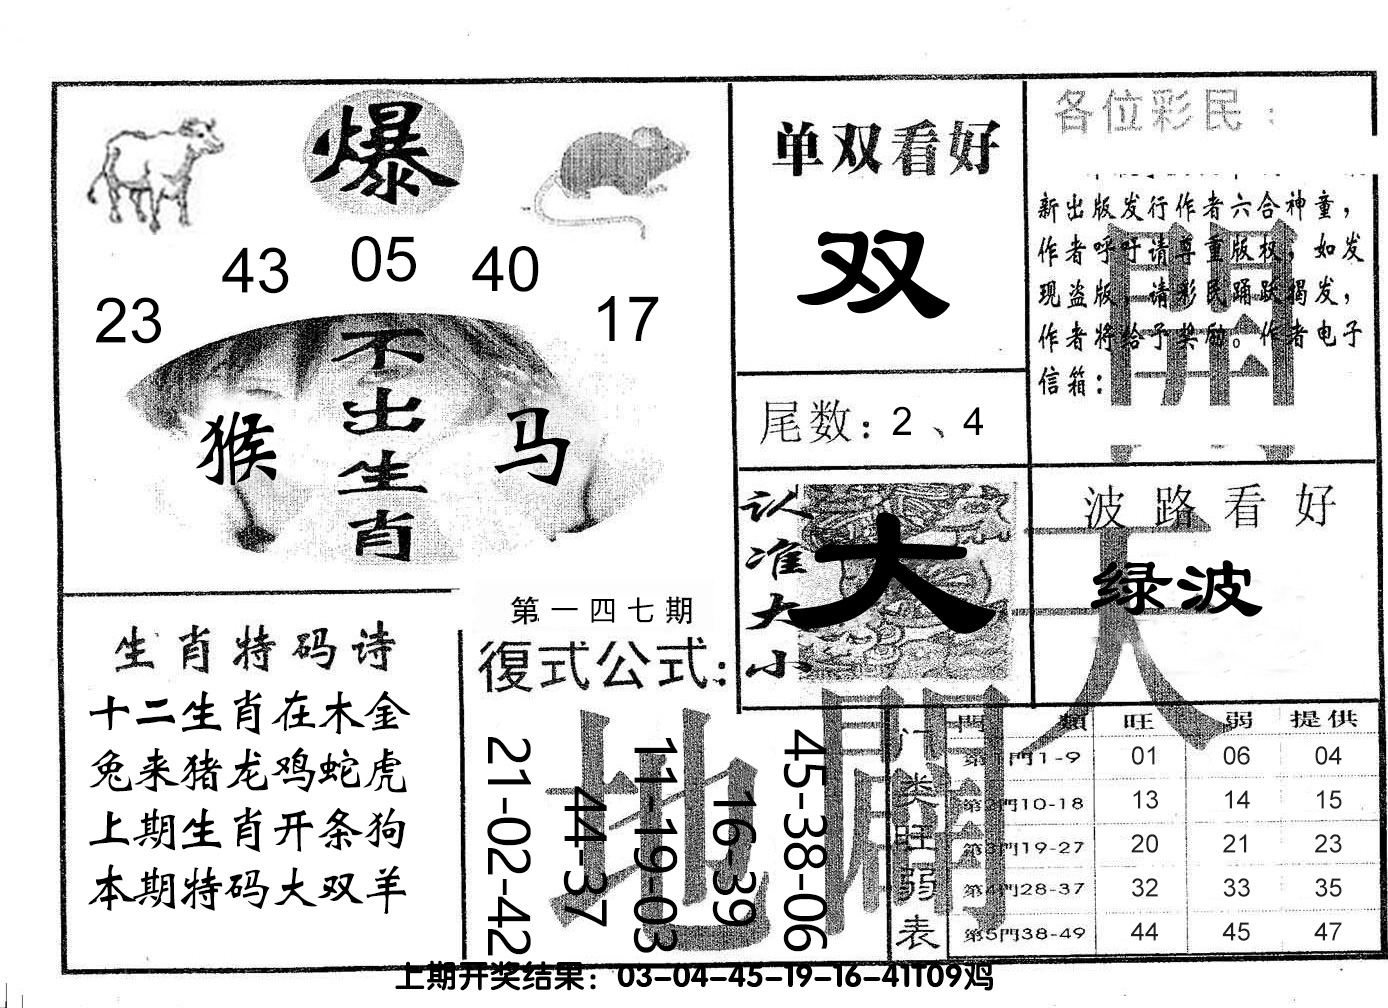 爆
23
43
05
40
17
不出生肖
猴
马
单双看好
双
尾数：2、4
各位彩民：
新出版发行作者六合神童，
作者呼吁请尊重版权，如发
现盗版，请彩民踊跃揭发，
作者将给予奖励。作者电子
信箱：
認准大小
大
波路看好
绿波
生肖特码诗
十二生肖在木金
兔来猪龙鸡蛇虎
上期生肖开条狗
本期特码大双羊
第一四七期
復式公式：
21-02-42
44-37
11-19-03
16-39
45-38-06
天
地
門类旺弱表
門類 旺 弱 提供
第1門1-9 01 06 04
第2門10-18 13 14 15
第3門19-27 20 21 23
第4門28-37 32 33 35
第5門38-49 44 45 47
上期开奖结果：03-04-45-19-16-41T09鸡